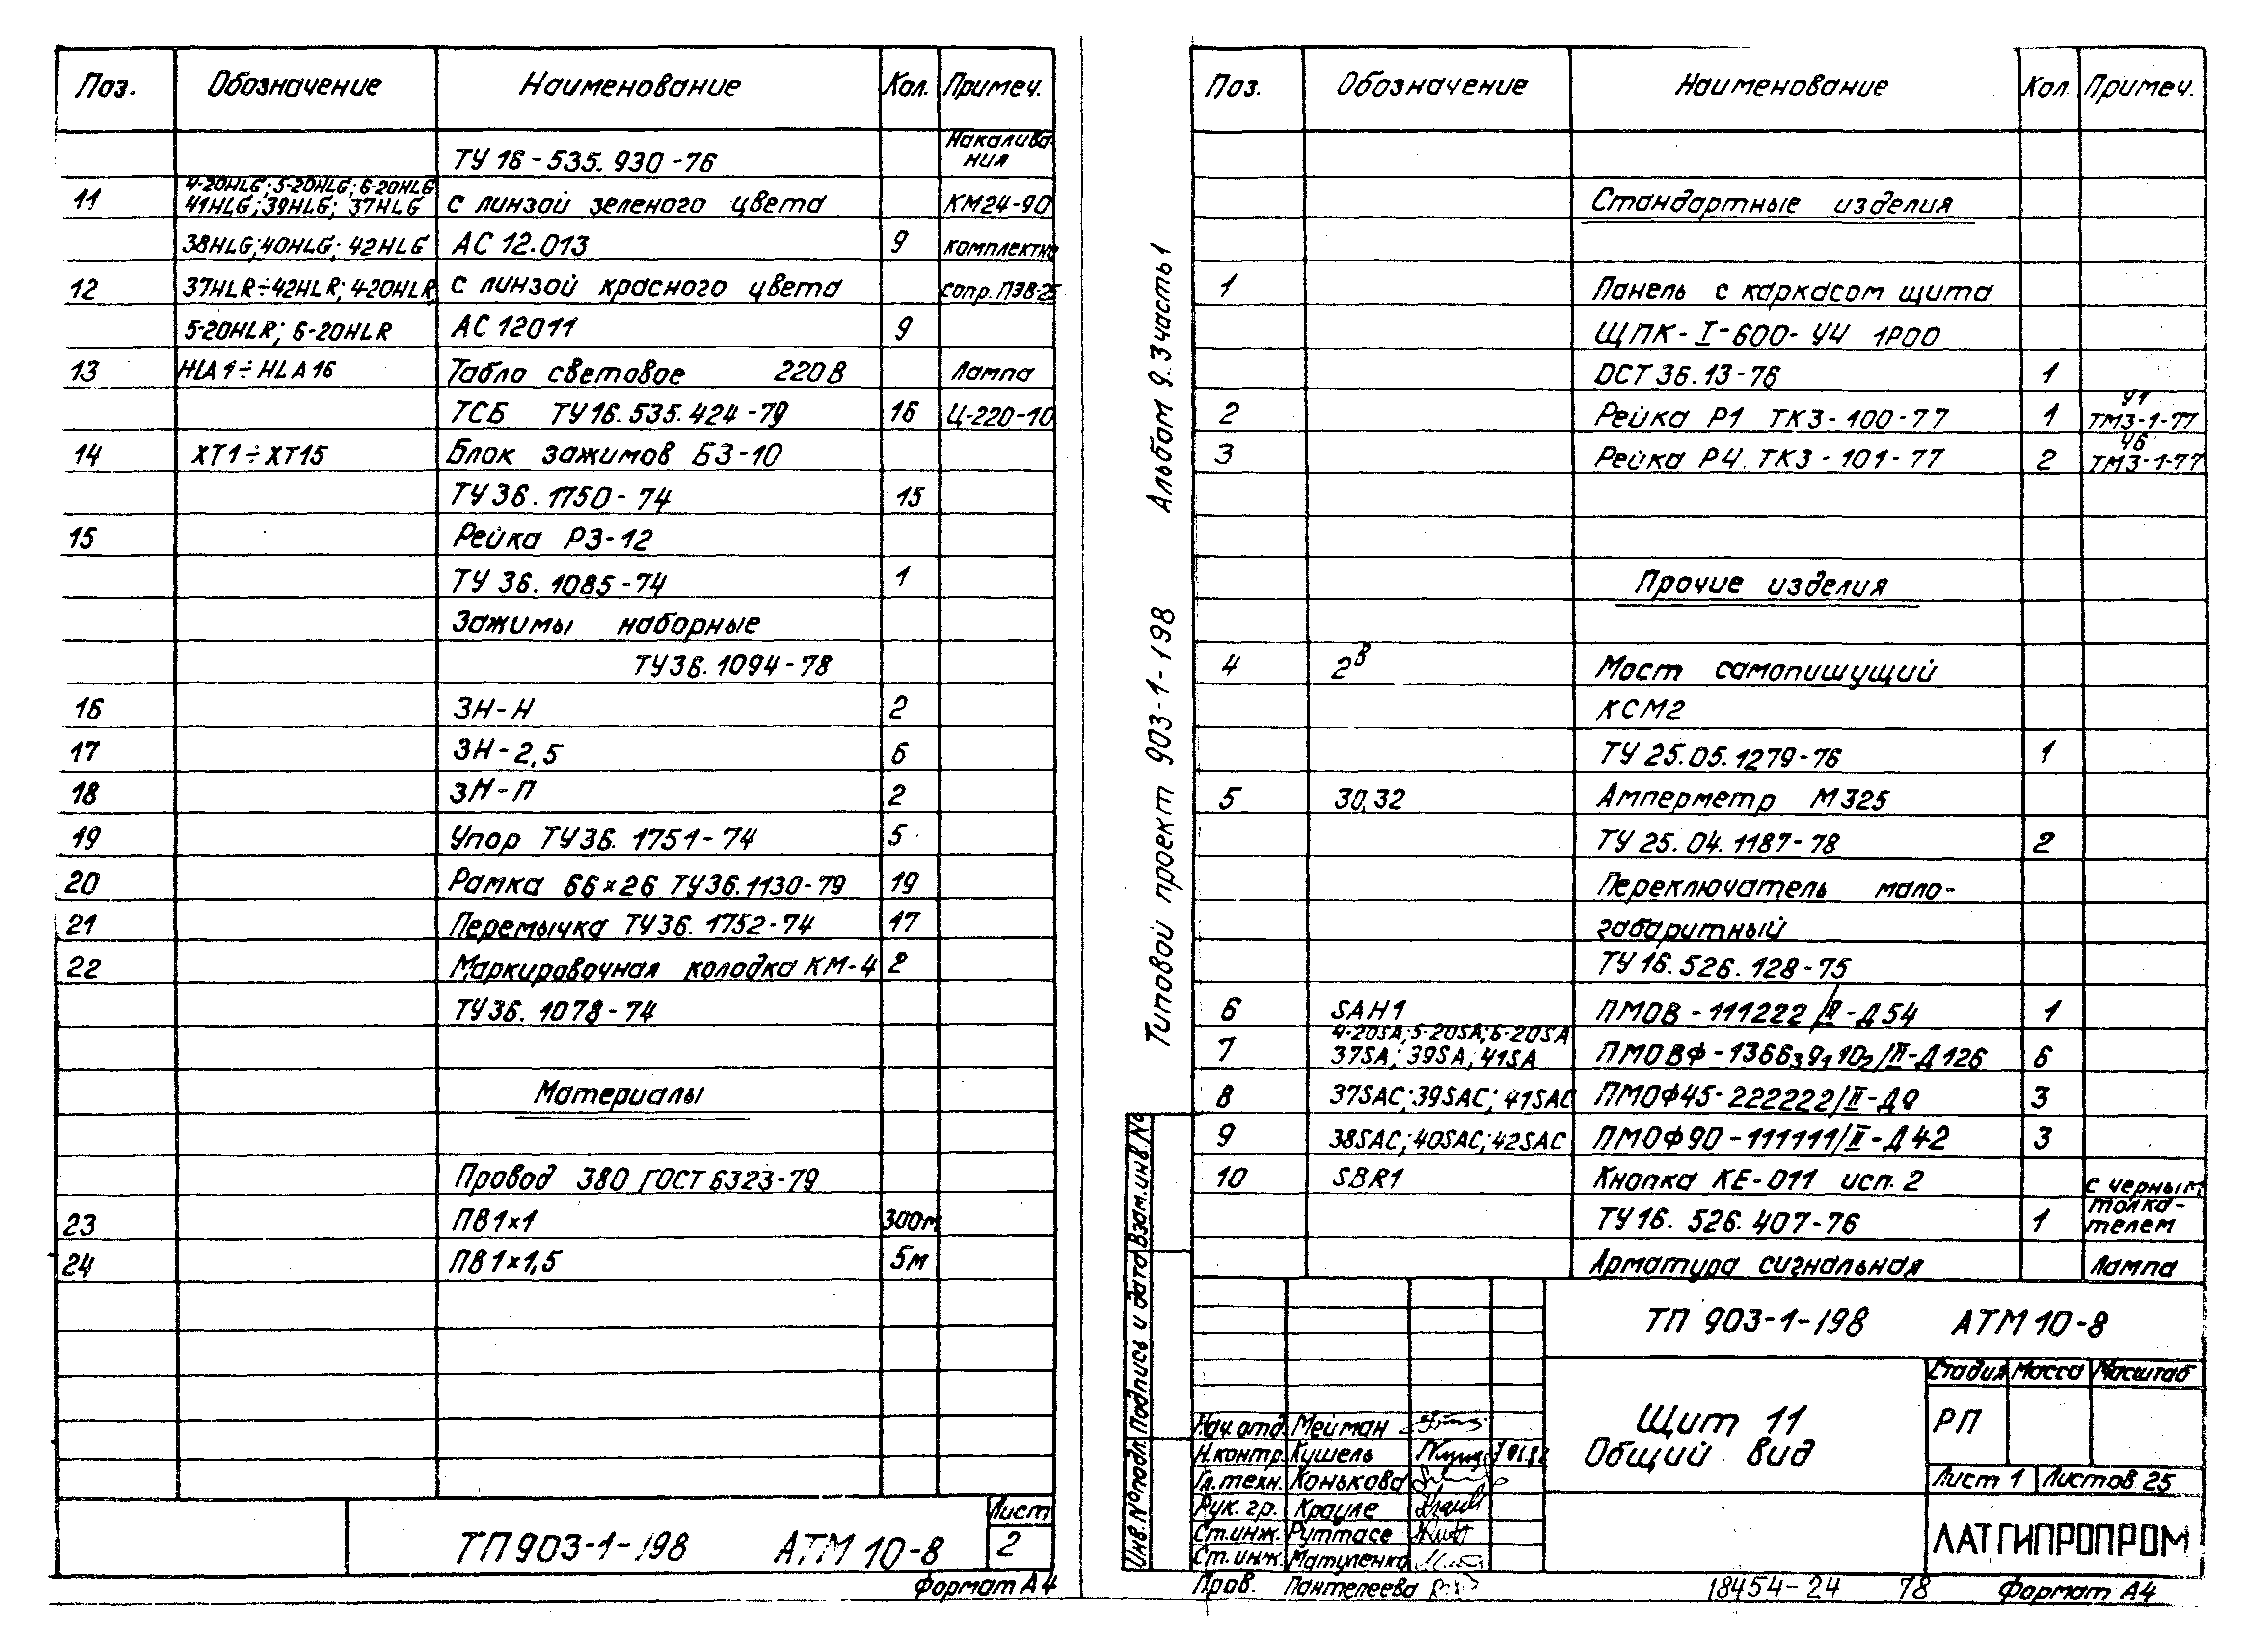 Поз. Обозначение Наименование Кол. Примеч.
ТУ 16-535.930-76 Накалива-
ния
4-20HLG; 5-20HLG; 6-20HLG
11 41HLG; 39HLG; 37HLG с линзой зеленого цвета КМ24-90
38HLG; 40HLG; 42HLG АС 12.013 9 комплектно
12 37HLR÷42HLR; 4-20HLR с линзой красного цвета сопр. ПЭВ-25
5-20HLR; 6-20HLR АС 12011 9
13 HLA1÷HLA16 Табло световое 220В Лампа
ТСБ ТУ16.535.424-79 16 Ц-220-10
14 ХТ1÷ХТ15 Блок зажимов БЗ-10
ТУ 36.1750-74 15
15 Рейка РЗ-12
ТУ 36.1085-74 1
Зажимы наборные
ТУ36.1094-78
16 ЗН-Н 2
17 ЗН-2,5 6
18 ЗН-П 2
19 Упор ТУ36.1751-74 5
20 Рамка 66×26 ТУ36.1130-79 19
21 Перемычка ТУ36.1752-74 17
22 Маркировочная колодка КМ-4 2
ТУ36.1078-74
Материалы
Провод 380 ГОСТ 6323-79
23 ПВ1×1 300м
24 ПВ1×1,5 5м
ТП 903-1-198 АТМ 10-8 Лист
2
Формат А4
Типовой проект 903-1-198 Альбом 9.3 часть 1
Поз. Обозначение Наименование Кол. Примеч.
Стандартные изделия
1 Панель с каркасом щита
ЩПК-I-600-У4 1Р00
ОСТ 36.13-76 1
2 Рейка Р1 ТК3-100-77 1 У1
ТМ3-1-77
3 Рейка Р4 ТК3-101-77 2 У6
ТМ3-1-77
Прочие изделия
4 2в Мост самопишущий
КСМ2
ТУ 25.05.1279-76 1
5 30,32 Амперметр М325
ТУ 25.04.1187-78 2
Переключатель мало-
габаритный
ТУ 16.526.128-75
6 SAH1 ПМОВ-111222/II-Д54 1
4-20SA; 5-20SA; 6-20SA
7 37SA; 39SA; 41SA ПМОВФ-1366₃9₁10₂/II-Д126 6
8 37SAC; 39SAC; 41SAC ПМОФ45-222222/II-Д9 3
9 38SAC; 40SAC; 42SAC ПМОФ90-111111/II-Д42 3
10 SBR1 Кнопка КЕ-011 исп. 2 с черным
ТУ16.526.407-76 1 толка-
телем
Арматура сигнальная Лампа
Инв.№подл. Подпись и дата Взам.инв.№
ТП 903-1-198 АТМ 10-8
Стадия Масса Масштаб
Щит 11
Общий вид
РП
Лист 1 Листов 25
ЛАТГИПРОПРОМ
Нач.отд. Мейман
Н.контр. Кушель
Гл.техн. Конькова
Рук. гр. Крауле
Ст.инж. Руттасе
Ст.инж. Матуленко
Пров. Пантелеева
18454-24 78 Формат А4